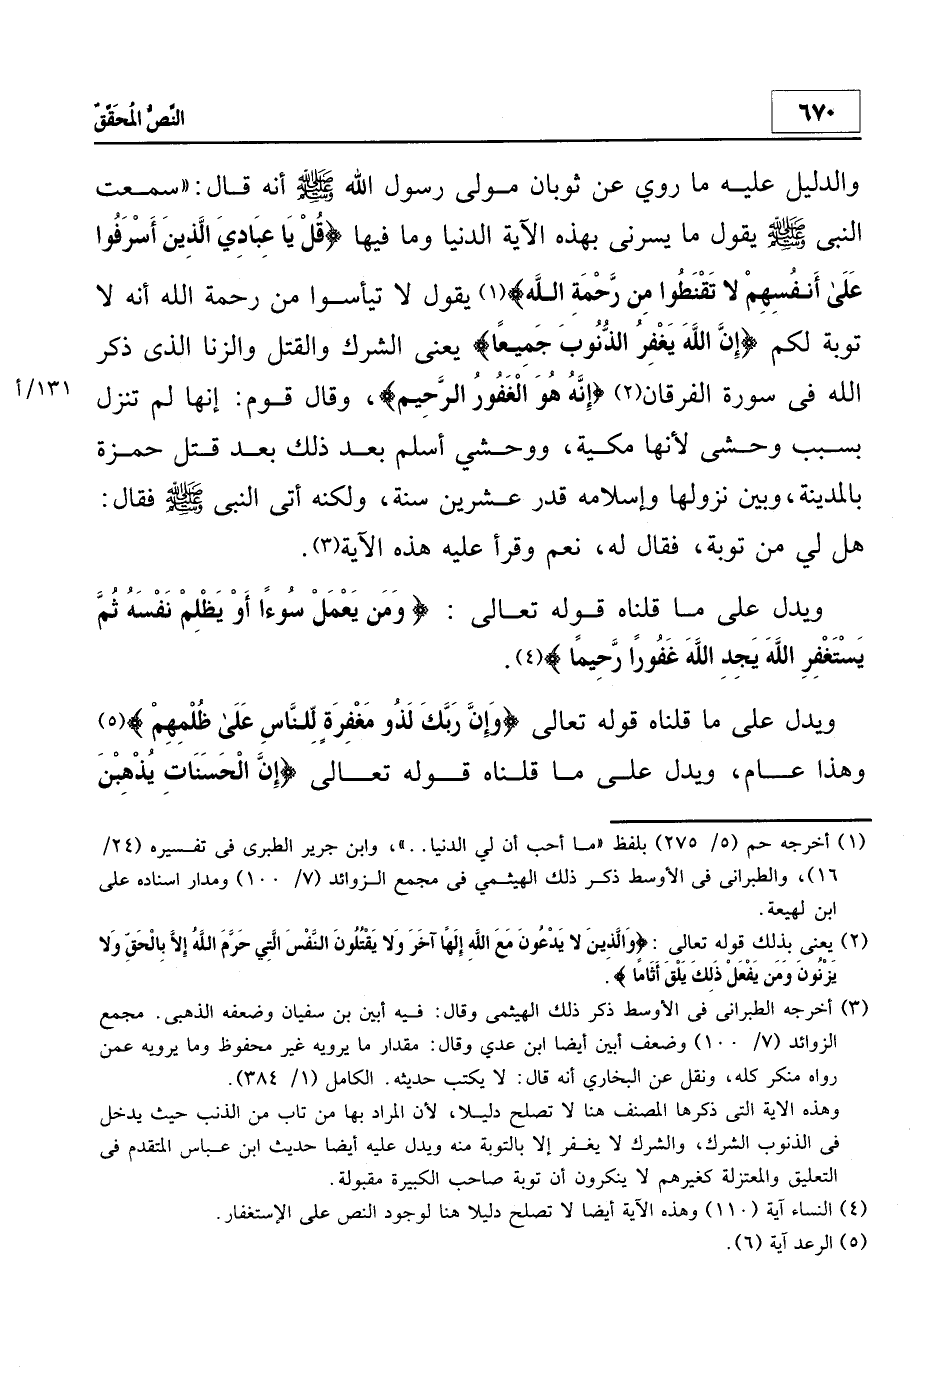 ٦٧٠
النَّصُّ المُحَقَّقْ
والدليل عليه ما روي عن ثوبان مولى رسول الله ﷺ أنه قال: «سمعت
النبى ﷺ يقول ما يسرنى بهذه الآية الدنيا وما فيها ﴿قُلْ يَا عِبَادِيَ الَّذِينَ أَسْرَفُوا
عَلَىٰ أَنفُسِهِمْ لا تَقْنَطُوا مِن رَّحْمَةِ اللَّه﴾(١) يقول لا تيأسوا من رحمة الله أنه لا
توبة لكم ﴿إِنَّ اللَّهَ يَغْفِرُ الذُّنُوبَ جَمِيعًا﴾ يعنى الشرك والقتل والزنا الذى ذكر
الله فى سورة الفرقان(٢) ﴿إِنَّهُ هُوَ الْغَفُورُ الرَّحِيم﴾، وقال قوم: إنها لم تنزل
١٣١/أ
بسبب وحشى لأنها مكية، ووحشي أسلم بعد ذلك بعد قتل حمزة
بالمدينة، وبين نزولها وإسلامه قدر عشرين سنة، ولكنه أتى النبي ﷺ فقال:
هل لي من توبة، فقال له، نعم وقرأ عليه هذه الآية(٣).
ويدل على ما قلناه قوله تعالى : ﴿ وَمَن يَعْمَلْ سُوءًا أَوْ يَظْلِمْ نَفْسَهُ ثُمَّ
يَسْتَغْفِرِ اللَّهَ يَجِدِ اللَّهَ غَفُورًا رَّحِيمًا ﴾(٤).
ويدل على ما قلناه قوله تعالى ﴿وَإِنَّ رَبَّكَ لَذُو مَغْفِرَةٍ لِّلنَّاسِ عَلَىٰ ظُلْمِهِمْ ﴾(٥)
وهذا عـام، ويدل على ما قلناه قوله تعالى ﴿إِنَّ الْحَسَنَاتِ يُذْهِبْنَ
(١) أخرجه حم (٥/ ٢٧٥) بلفظ «ما أحب أن لي الدنيا..»، وابن جرير الطبرى فى تفسيره (٢٤/
١٦)، والطبرانى فى الأوسط ذكر ذلك الهيثمي فى مجمع الزوائد (٧/ ١٠٠) ومدار اسناده على
ابن لهيعة.
(٢) يعنى بذلك قوله تعالى :﴿وَالَّذِينَ لا يَدْعُونَ مَعَ اللَّهِ إِلَهًا آخَرَ وَلا يَقْتُلُونَ النَّفْسَ الَّتِي حَرَّمَ اللَّهُ إِلاَّ بِالْحَقِّ وَلا
يَزْنُونَ وَمَن يَفْعَلْ ذَلِكَ يَلْقَ أَثَامًا ﴾.
(٣) أخرجه الطبرانى فى الأوسط ذكر ذلك الهيثمى وقال: فيه أبين بن سفيان وضعفه الذهبى. مجمع
الزوائد (٧/ ١٠٠) وضعف أبين أيضا ابن عدي وقال: مقدار ما يرويه غير محفوظ وما يرويه عمن
رواه منكر كله، ونقل عن البخاري أنه قال: لا يكتب حديثه. الكامل (١/ ٣٨٤).
وهذه الاية التى ذكرها المصنف هنا لا تصلح دليلا، لأن المراد بها من تاب من الذنب حيث يدخل
فى الذنوب الشرك، والشرك لا يغفر إلا بالتوبة منه ويدل عليه أيضا حديث ابن عباس المتقدم فى
التعليق والمعتزلة كغيرهم لا ينكرون أن توبة صاحب الكبيرة مقبولة.
(٤) النساء آية (١١٠) وهذه الآية أيضا لا تصلح دليلا هنا لوجود النص على الإستغفار.
(٥) الرعد آية (٦).